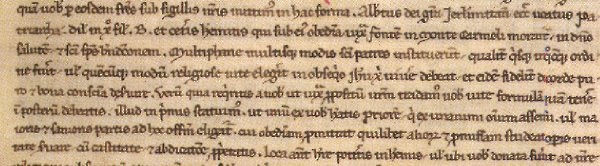 quā vob p eosdem frēs sub sigillis uiris missam in hac forma. Albtus dei grā Jerlimitane ecce vocatus pa
triarcha. dil' in xº fil'. B. et cetis hemitis qui sub ei' obediā iuxᵃ fontem in monte Carmeli morant. in dn̄o
salutē & sc̄i sp̄s bn̄dcōnem. Multipharie multisq; modis sc̄i patres instituerūt. qualit qisq; i qºcūq; ordi
ne fuit. ul' quēcūq; modū religiose uite elegit in obseqº ihū x uiue debeat & eidē fidelit de corde pu
ro & bona conscīa desuire. Verū quia reqritis a nob ut iuxᵃ ppositū urm̄ tradam' vob uite formulā quā tenē
i posterū debeatis. illud in pmis statuim'. ut unū ex vob heatis priorē. q ex unanimi oīum assensu. ul' ma
ioris & sanioris partis ad hoc offm̄ eligat. cui obediam pmittat quilibet alioꝝ & pmissam studeat opis veri
tate suare cū castitate & abdicatōe pprietatis. Loca aut hre potitis in hemis. ul' ubi vob donata fuit ad ure